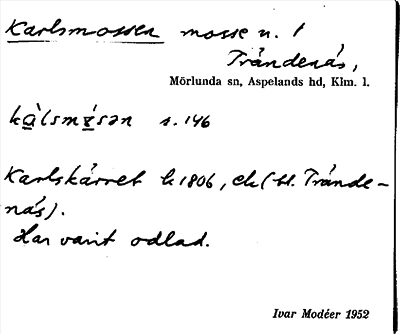 Karlsmossen mosse n. 1
Tråndenäs,
Mörlunda sn, Aspelands hd, Klm. l.
s. 146
Karlskärret k 1806, ek (bl. Trånde-
näs).
Har varit odlad.
Ivar Modéer 1952